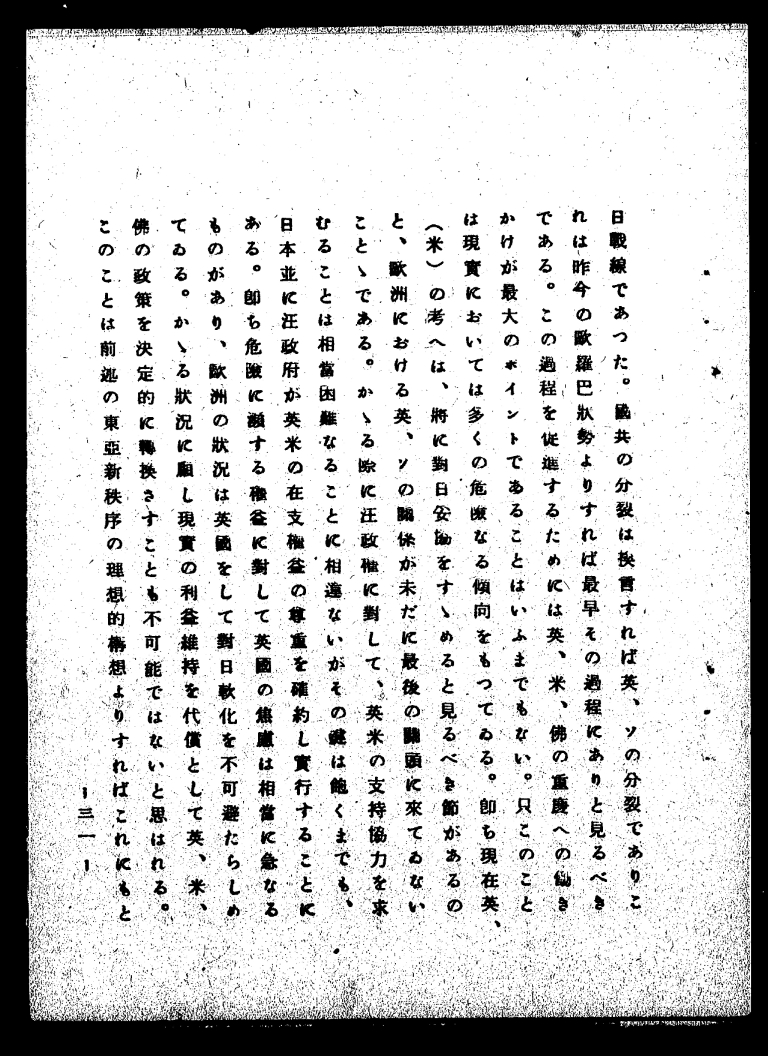 日戰線であつた。國共の分裂は換言すれば英、ソの分裂でありこ
れは昨今の歐羅巴狀勢よりすれば最早その過程にありと見るべき
である。この過程を促進するためには英、米、佛の重慶への働き
かけが最大のポイントであることはいふまでもない。只このこと
は現實においては多くの危險なる傾向をもつてゐる。卽ち現在英、
（米）の考へは、將に對日妥協をすゝめると見るべき節があるの
と、歐洲における英、ソの關係が未だに最後の關頭に來てゐない
ことゝである。かゝる際に汪政權に對して、英米の支持協力を求
むることは相當困難なることに相違ないがその鍵は飽くまでも、
日本並に汪政府が英米の在支權益の尊重を確約し實行することに
ある。卽ち危險に瀕する權益に對して英國の焦慮は相當に急なる
ものがあり、歐洲の狀況は英國をして對日軟化を不可避たらしめ
てゐる。かゝる狀況に願し現實の利益維持を代償として英、米、
佛の政策を決定的に轉換さすことも不可能ではないと思はれる。
このことは前述の東亞新秩序の理想的構想よりすればこれにもと
ー三一ー